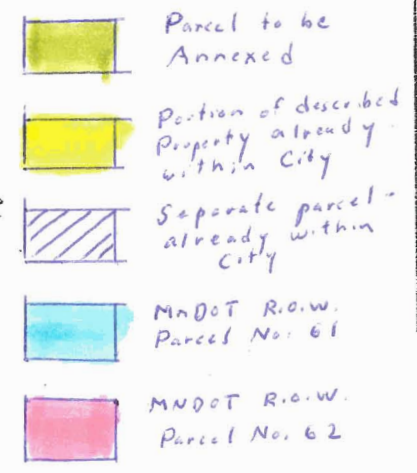 Parcel to be
Annexed
Portion of described
Property already
within City
Separate parcel -
already within
City
MnDOT R.O.W.
Parcel No. 61
MNDOT R.O.W.
Parcel No. 62